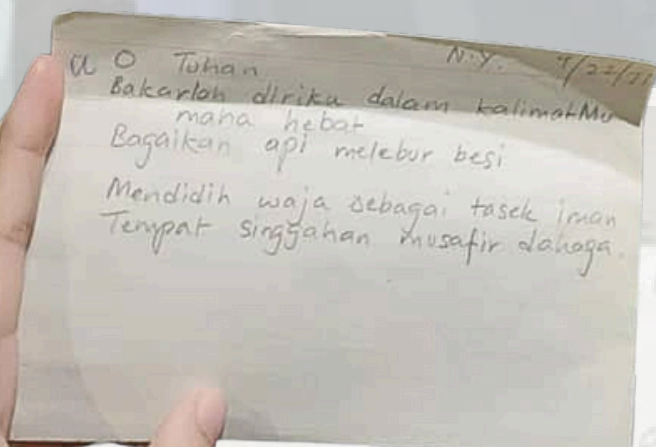 a O Tuhan N.Y. 9/22/71
Bakarlah diriku dalam kalimatMu
maha hebat
Bagaikan api melebur besi
Mendidih waja sebagai tasek iman
Tempat singgahan musafir dahaga.